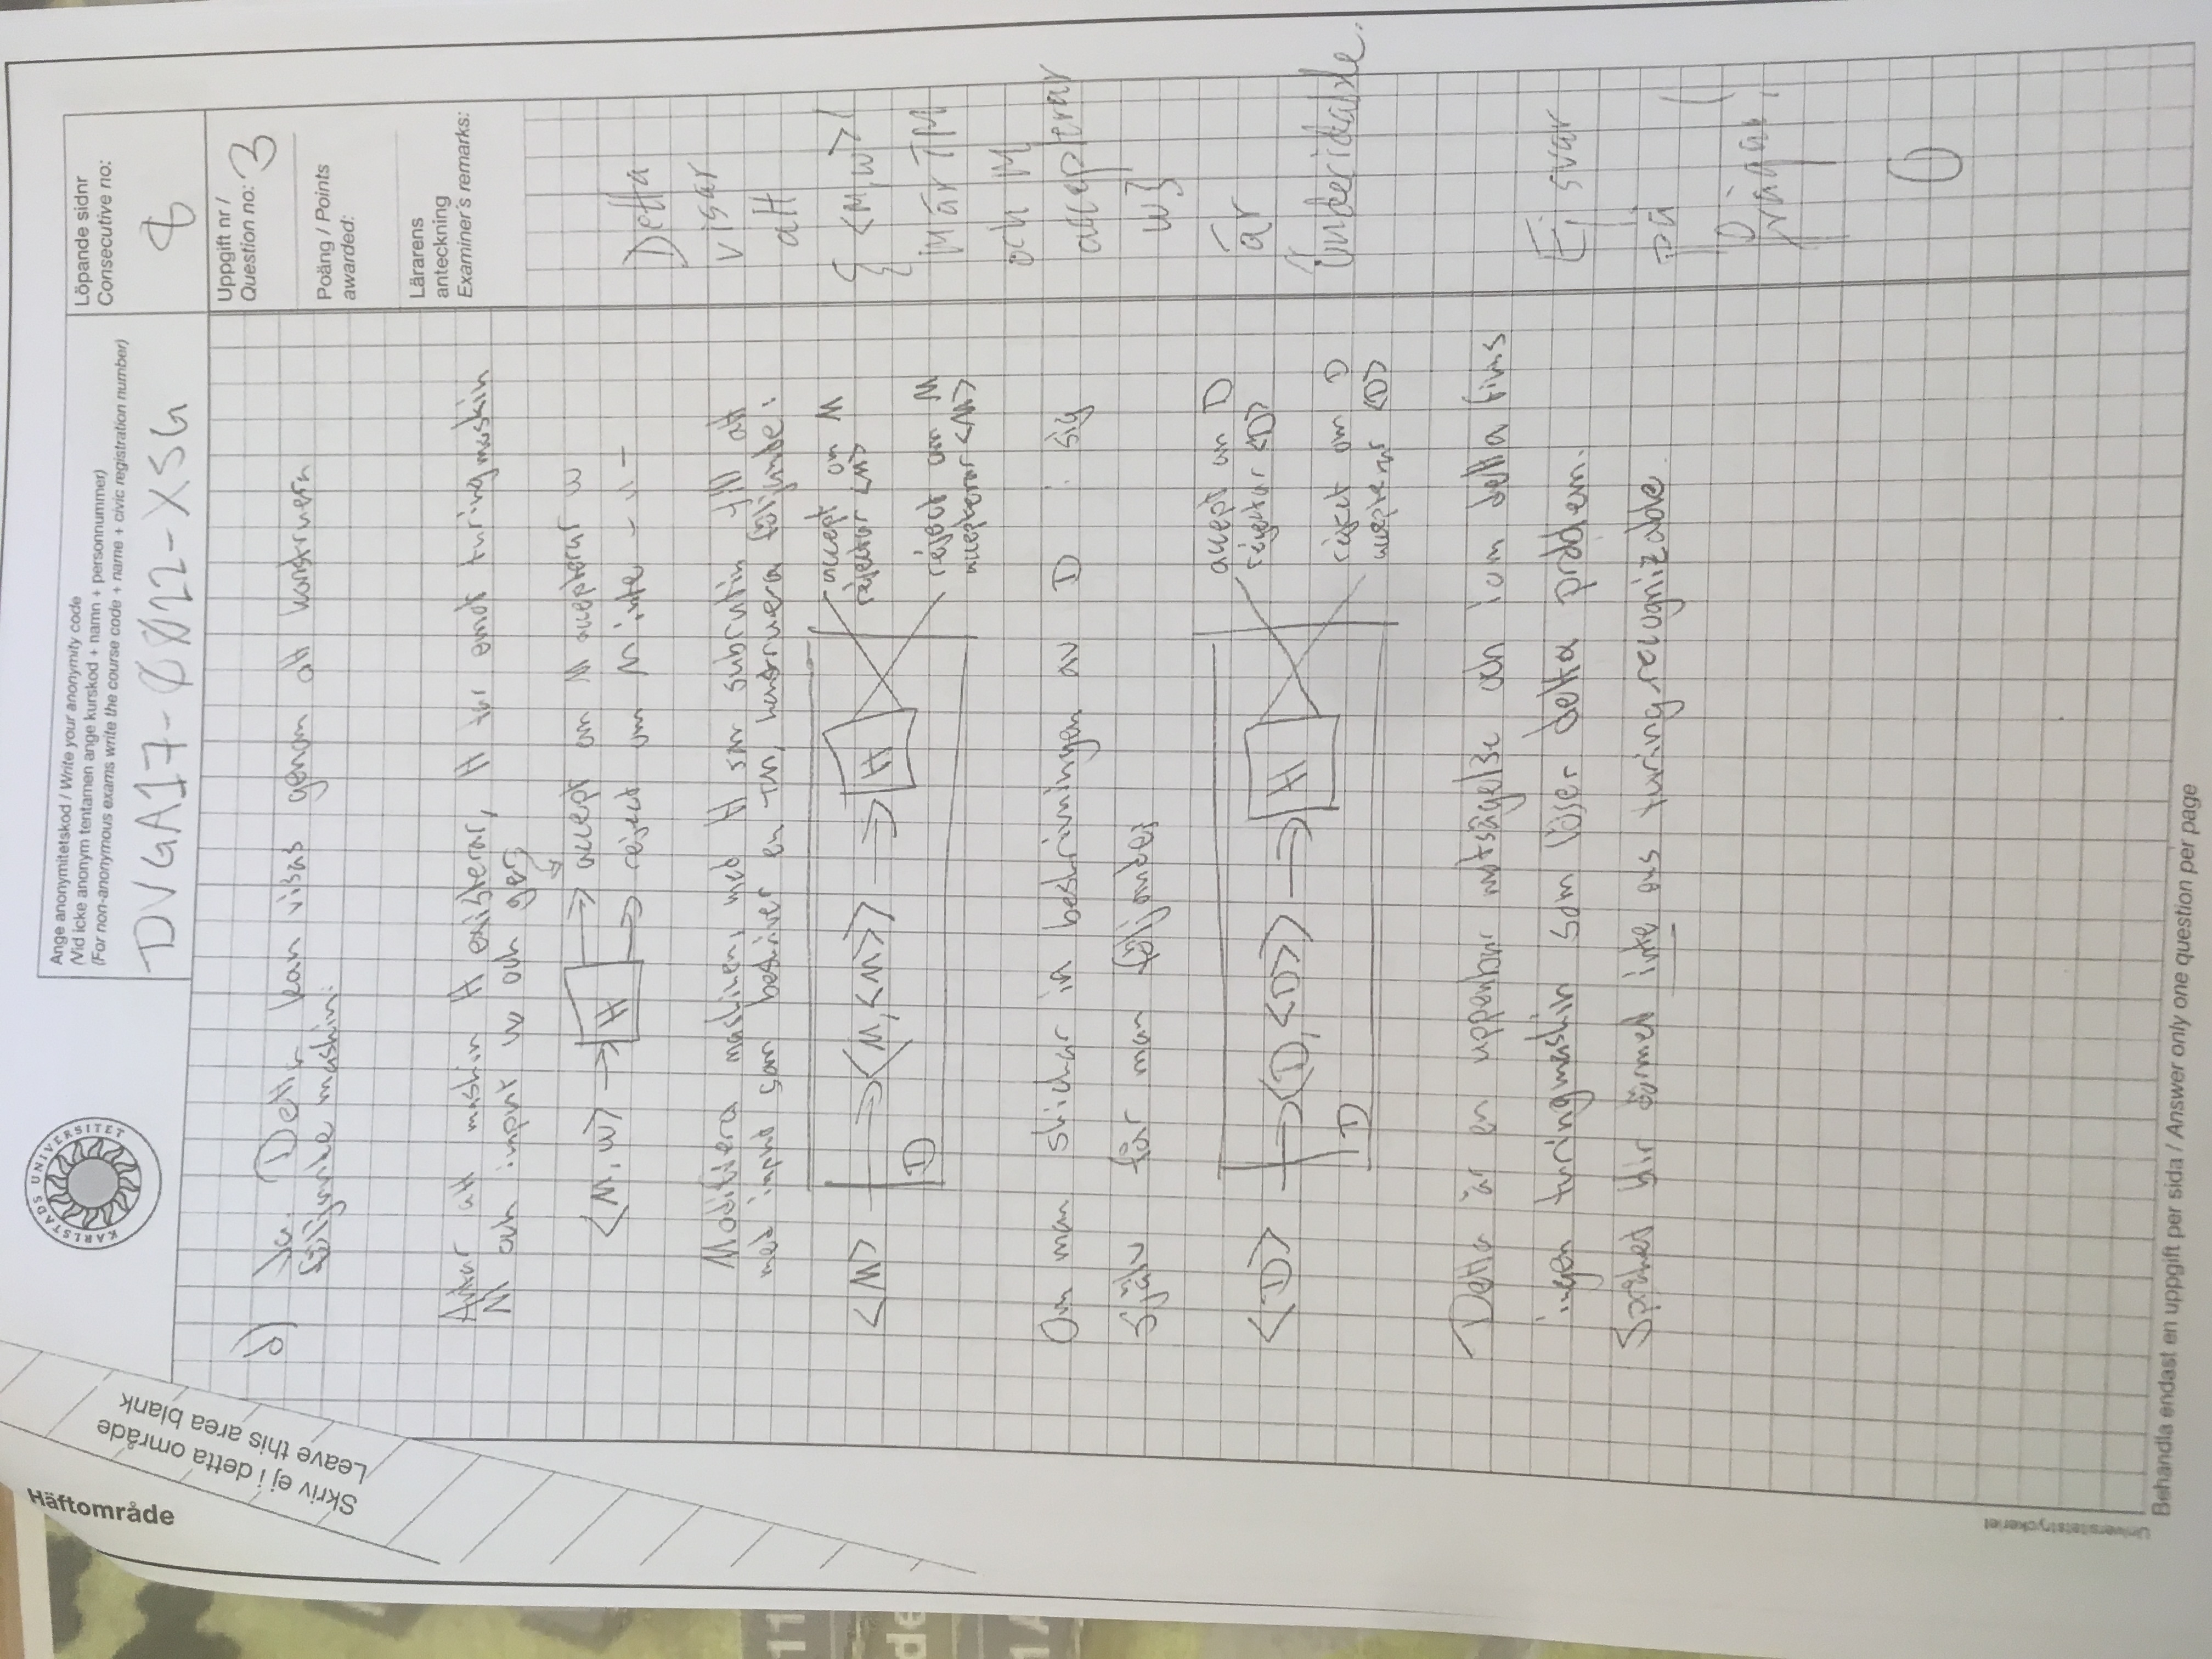 Häftområde
Skriv ej i detta område
Leave this area blank
KARLSTADS UNIVERSITET
Ange anonymitetskod / Write your anonymity code
(Vid icke anonym tentamen ange kurskod + namn + personnummer)
(For non-anonymous exams write the course code + name + civic registration number)
DVGA17-0012-XSG
Löpande sidnr
Consecutive no:
8
Uppgift nr /
Question no: 3
Poäng / Points
awarded:
Lärarens
anteckning
Examiner's remarks:
d) Ja. Detta kan visas genom att konstruera
följande maskin:
Antar att maskin H existerar, H tar emot turingmaskin
M och input w och ger
<M, w> → H
accept om M accepterar w
reject om M inte -"-
Modifiera maskinen, med H som subrutin till att
med input som beskriver en TM, konstruera följande:
<M> → <M, <M>> → H
D
accept om M
rejectar <M>
reject om M
accepterar <M>
Om man skickar in beskrivningen av D i sig
själv får man följande:
<D> → <D, <D>> → H
D
accept om D
rejectar <D>
reject om D
accepterar <D>
Detta är en uppenbar motsägelse och i om detta finns
ingen turingmaskin som löser detta problem.
Språket blir därmed inte ens turing recognizable.
Detta
visar
att
{<M,w>|
M är TM
och M
accepterar
w}
är
Undecidable.
Ej svar
på
frågan!
0
11
de
1A
Universitetstryckeriet
Behandla endast en uppgift per sida / Answer only one question per page